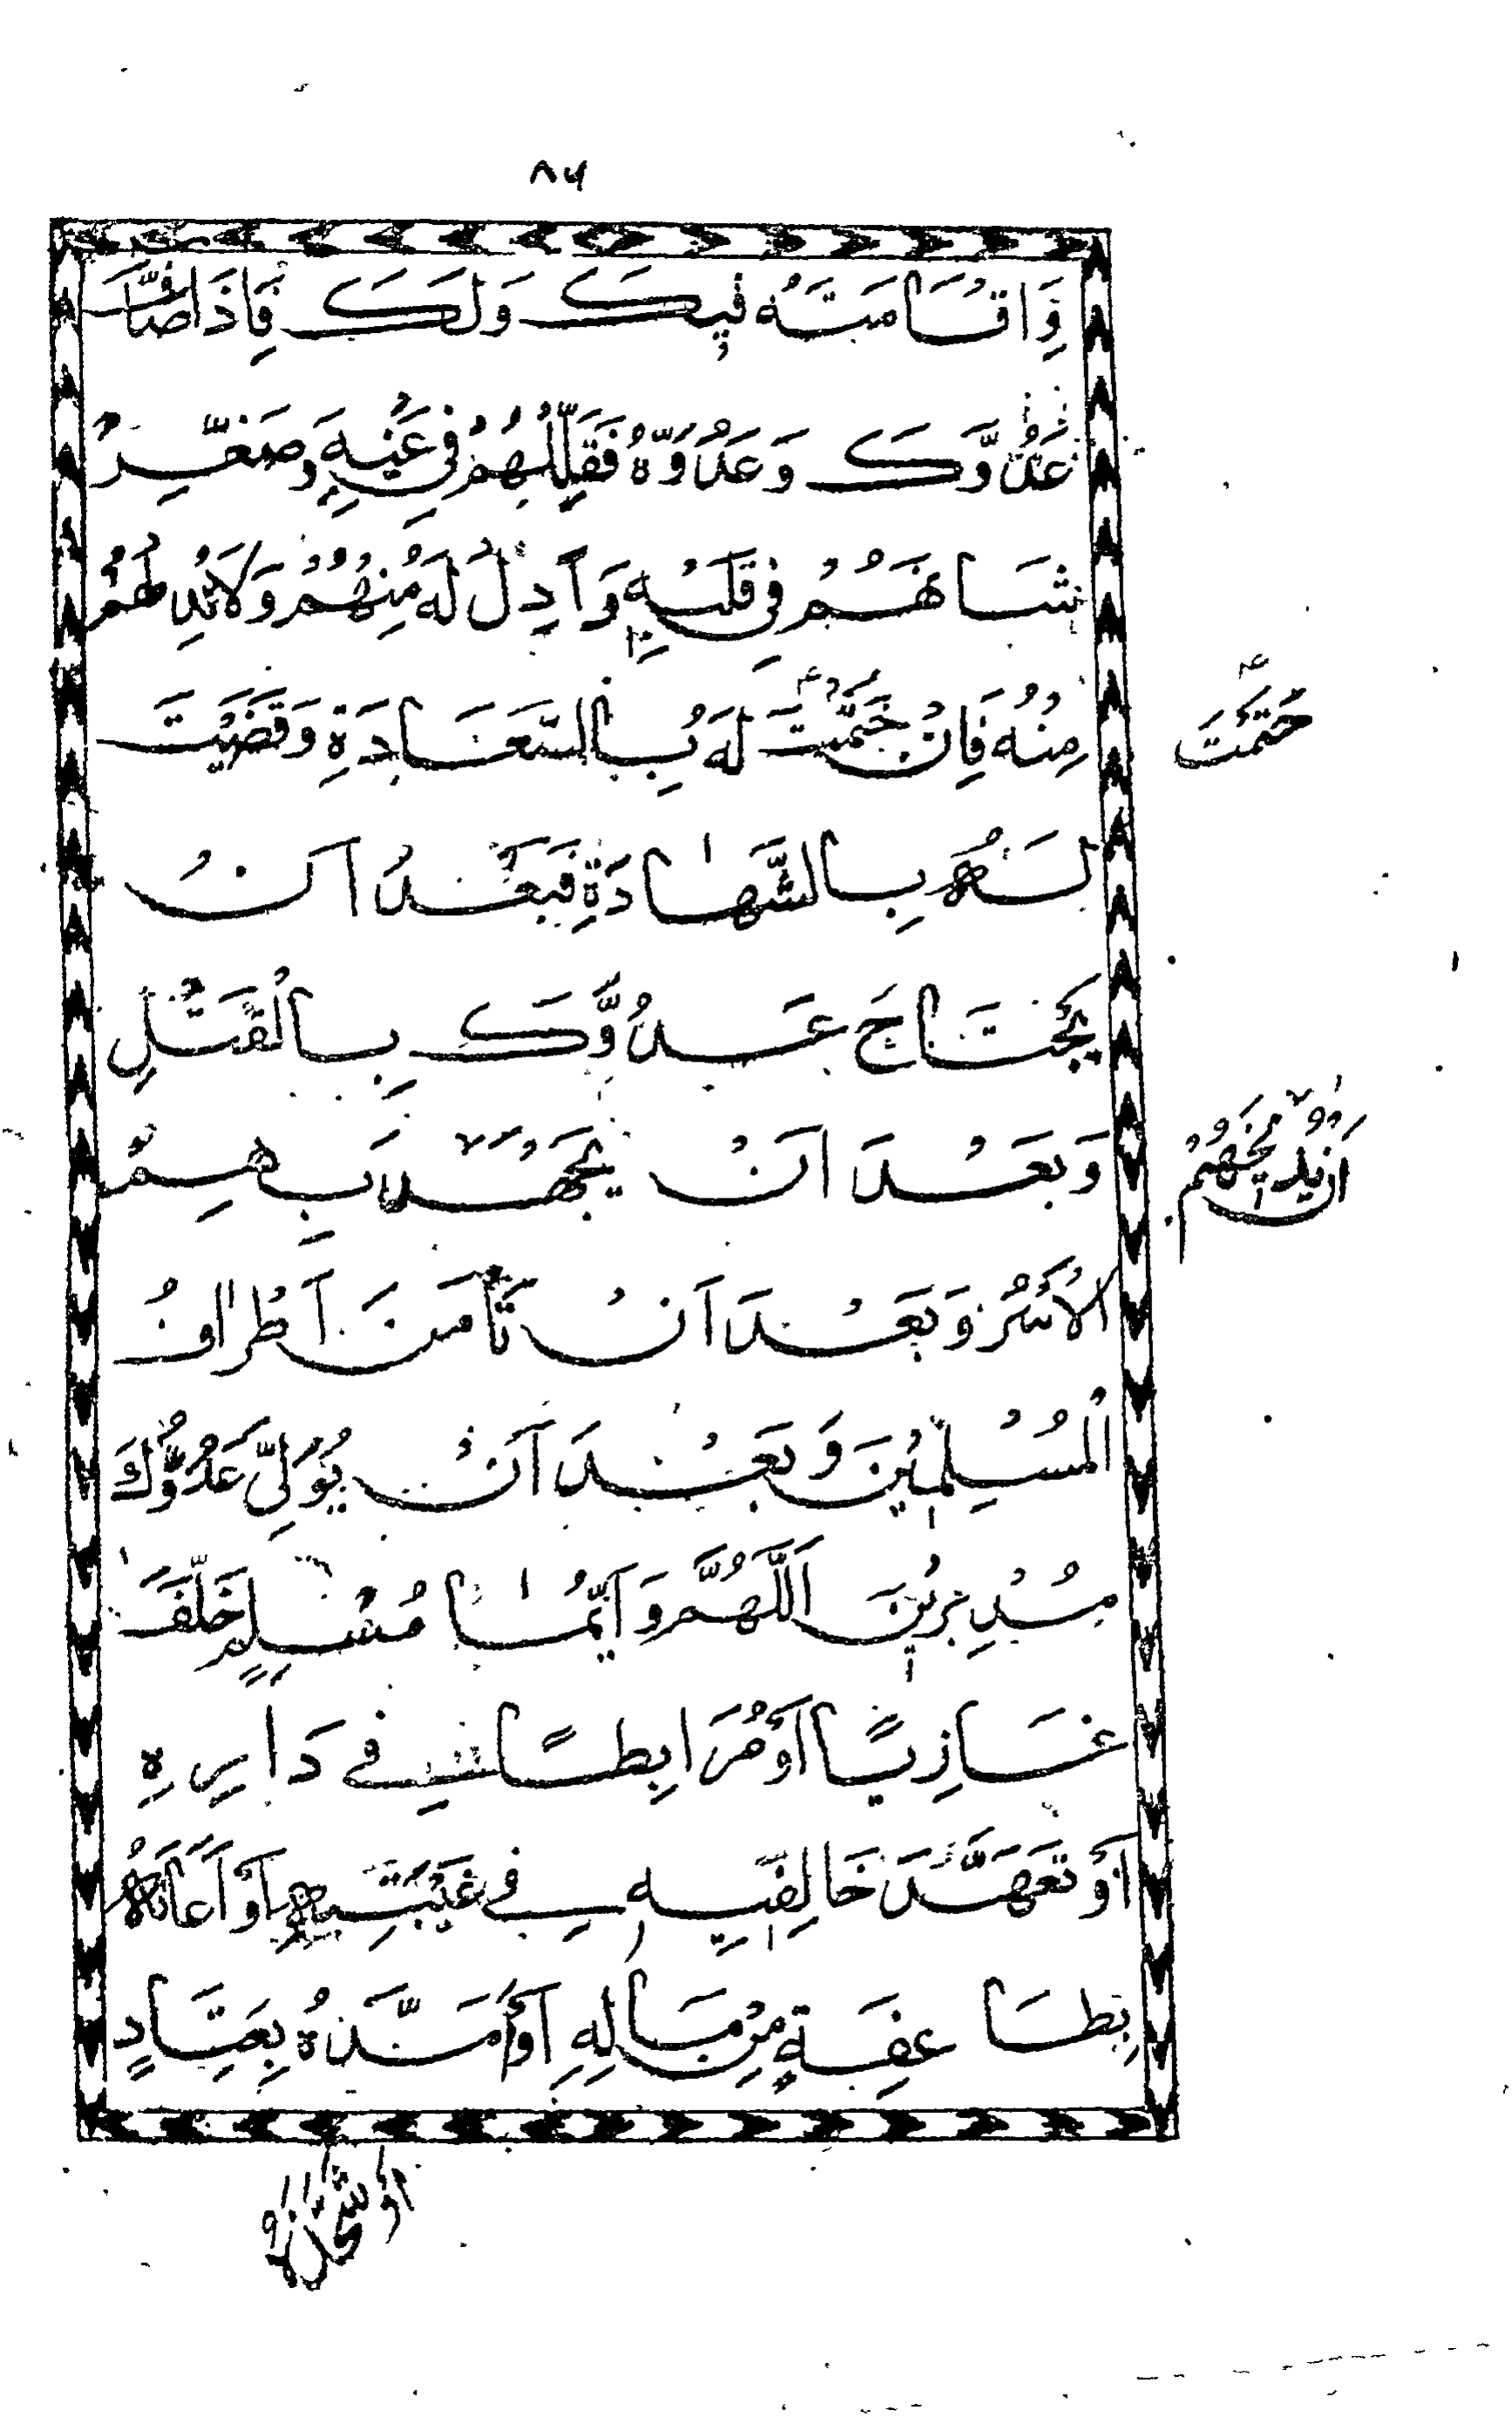 ٨٦
وَاِقَامَتَهُ فِيْكَ وَلَكَ فَاِذَا صَآفَّ
عَدُوَّكَ وَعَدُوَّهُ فَقَلِّلْهُمْ فِىْ عَيْنِهٖ وَصَغِّرْ
شَانَهُمْ فِىْ قَلْبِهٖ وَاَدِلْ لَهُ مِنْهُمْ وَلَا تُدِلْهُمْ
مِنْهُ فَاِنْ خَتَمْتَ لَهُ بِالسَّعَادَةِ وَقَضَيْتَ
حَتَمْتَ
لَهُ بِالشَّهَادَةِ فَبَعْدَ اَنْ
يَجْتَاحَ عَدُوَّكَ بِالْقَتْلِ
وَبَعْدَ اَنْ يَجْهَدَ بِهِمُ
الْاَسْرُ وَبَعْدَ اَنْ تَأْمَنَ اَطْرَافُ
الْمُسْلِمِيْنَ وَبَعْدَ اَنْ يُوَلِّىَ عَدُوُّكَ
مُدْبِرِيْنَ اَللّٰهُمَّ وَاَيُّمَا مُسْلِمٍ خَلَفَ
غَازِيًا اَوْ مُرَابِطًا فِىْ دَارِهِ
اَوْ تَعَهَّدَ خَالِفِيْهِ فِىْ غَيْبَتِهِ اَوْ اَعَانَهُ
بِطَائِفَةٍ مِنْ مَالِهِ اَوْ اَمَدَّهُ بِعِتَادٍ
اَوْ شَحَذَهُ